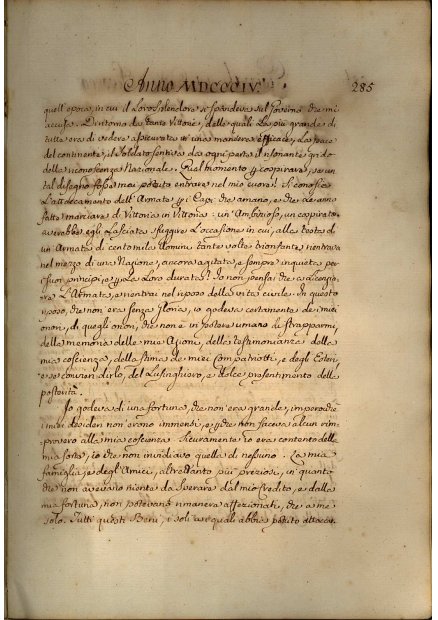 Anno MDCCCIV. 285
quell'epoca, in cui il Loro splendore si spandeva sul Governo che mi
accusa. Di ritorno da tante Vittorie, delle quali La più grande di
tutte era di vedere assicurata in una maniera efficace, La pace
del continente, il Soldato sentiva da ogni parte il risonante grido
della riconoscenza Nazionale. Qual momento per cospirare, se un
tal disegno fosse mai potuto entrare nel mio cuore! Si conosce
L'attaccamento dell'Armate per i Capi che amano, e che
fatto marciare di Vittoria in Vittoria: un Ambizioso, un cospiratore
avrebbe egli Lasciata sfuggire L'occasione in cui, alla testa di
un'Armata di cento mila Uomini tante volte trionfante rientrava
nel mezzo di una Nazione, ancora agitata, e sempre inquieta per
i suoi principj, e per La Loro durata? Io non pensai che a Licenziare
L'Armata, e rientrai nel riposo della vita civile. In questo
riposo, che non era senza gloria, io godeva certamente de' miei
onori, di quegli onori, che non è in potere umano di strapparmi,
della memoria delle mie Azioni, della testimonianza della
mia coscienza, della stima de' miei compatriotti, e degli Esteri
e se conviene dirlo, del Lusinghiero, e dolce presentimento della
posterità.
Io godeva di una fortuna, che non era grande, imperocchè
i miei desiderj non erano immensi, e perchè non faceva alcun rim-
provero alla mia coscienza. Sicuramente io era contento della
mia sorte, io che non invidiavo quella di nessuno: La mia
famiglia, e degli Amici, altrettanto più preziosi, in quanto
che non avevano niente da sperare dal mio Credito, e dalla
mia fortuna, non potevano rimanere affezionati, che a me
solo. Tutti questi Beni, i soli ai quali abbia potuto attaccar-